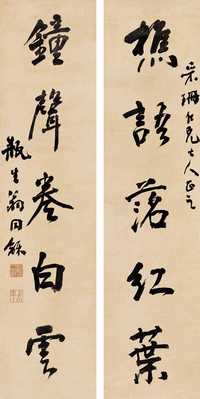 采珊仁兄大人正之
樵語落紅葉
鐘聲卷白雲
瓶生翁同龢